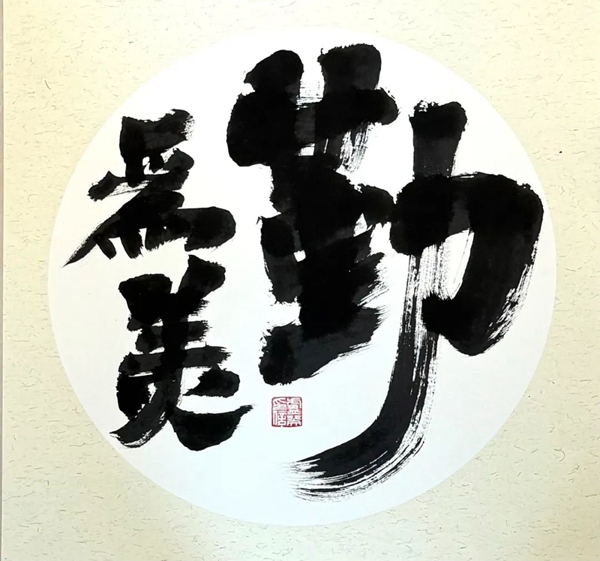 勤
為美